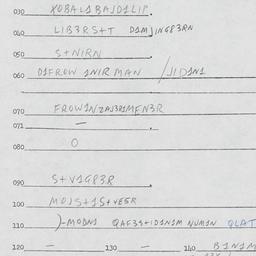 030 XOBAL1BAJD1LIP.
040 LIB3RS+T D1MJING83RN
050 S+NIRN
060 D1FROW 1NIR MAN / JID1N1
070
071 —
080 O
090 S+V1G83R
100 MOJS+1S+VESR
110 )-MODN1 QAF3S+ID1N1M NUM1N QLAT
120 — 130 — 140 B1N1M